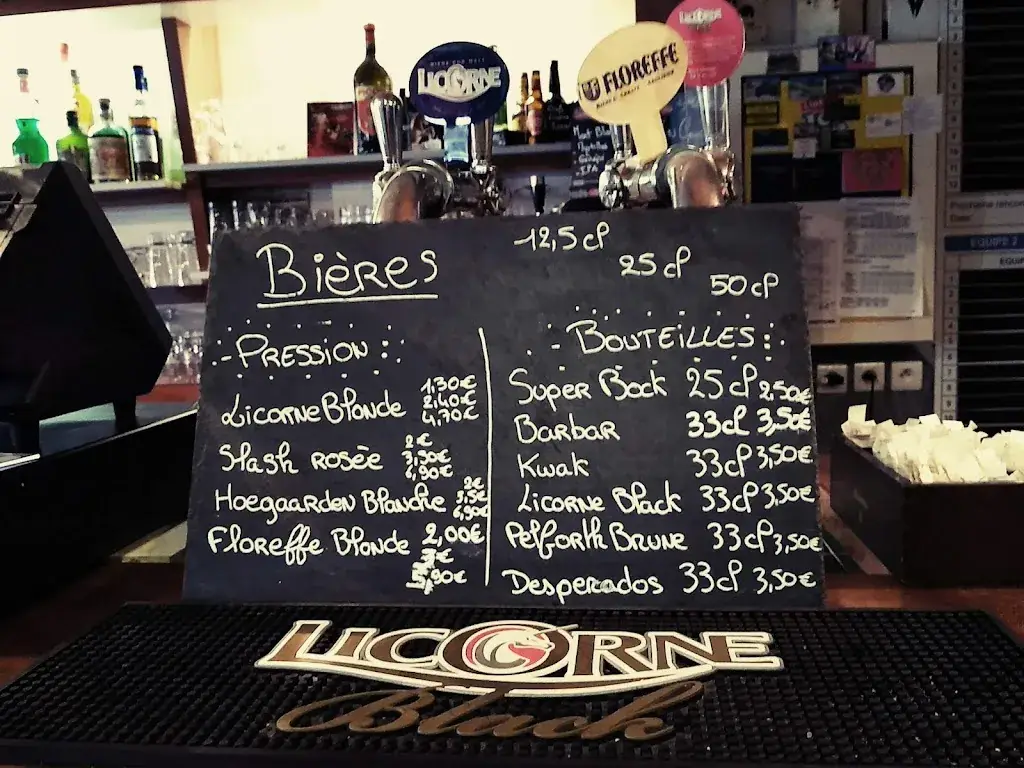 LICORNE
FLOREFFE
LICORNE
EQUIPE 2
Bières
12,5 cl
25 cl
50 cl
PRESSION
Licorne Blonde 1,30€
2,40€
4,70€
Slash ROSÉE 2€
3,50€
6,90€
HOEGAARDEN Blanche 2€
3,5€
6,90€
Floreffe Blonde 2,00€
3€
5,90€
BOUTEILLES
Super Bock 25 cl 2,50€
Barbar 33cl 3,50€
Kwak 33cl 3,50€
Licorne Black 33cl 3,50€
Pelforth BRUNE 33cl 3,50€
Desperados 33cl 3,50€
LICORNE
Black